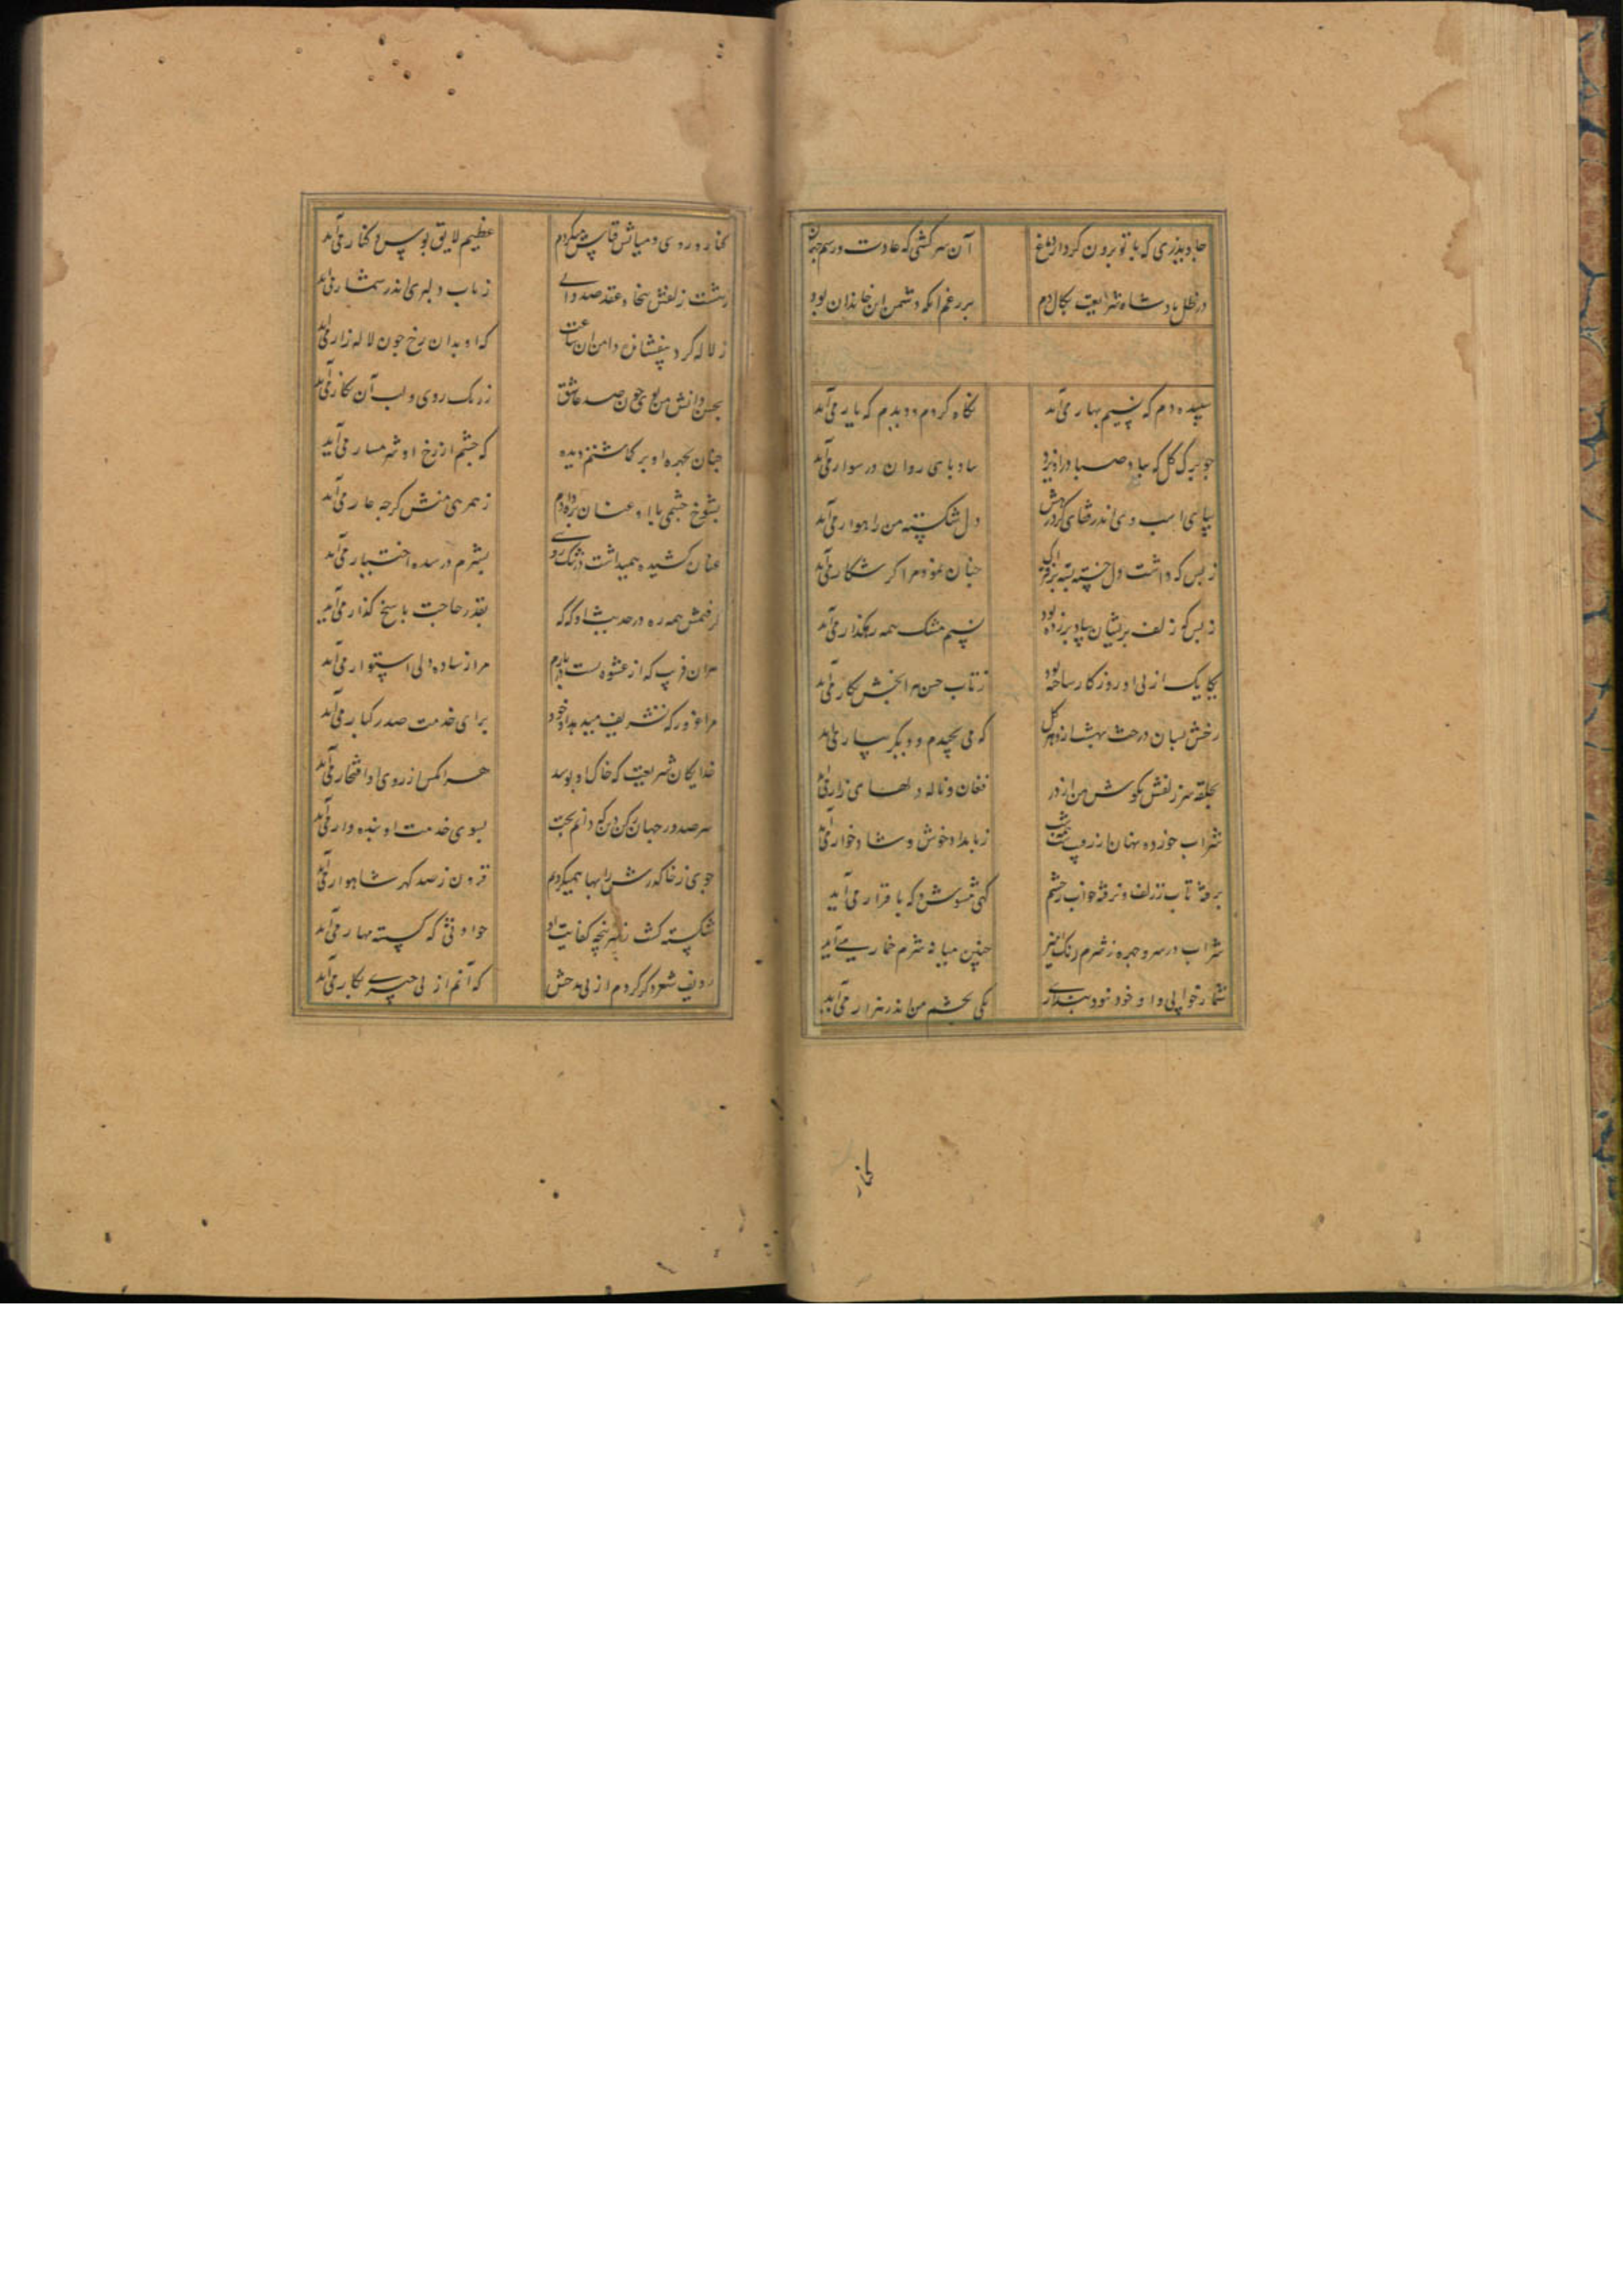 جاوید زی که با تو برون کرد از دماغ آن سرکشی که عادت و رسم جهان
در ظل پادشاه شریعت بکال دم بر رغم آنکه دشمن این خاندان بود
سپیده دم که نسیم بهار می آید نگاه کردم و دیدم که یار می آید
چو برگ گل که بباد صبا دراویزد بباد پای روان در سوار می آید
بپای اسب وی اندر قفای کرد رهش دل شکسته من راهوار می آید
ز بس که داشت دل خسته بسته بر فتراک چنان نمود مرا کز شکار می آید
ز بس که زلف پریشان بباد برزده بود نسیم مشک همه رهگذار می آید
بکایک از پی او روزکار ساخته بود ز تاب حسن هر آنچش بکار می آید
رخش بسان درخت بهشت از هر گل که می بچیدم و دیگر ببار می آید
بحلقه سر زلفش بگوش من از دور فغان و ناله دلهای زار می آید
شراب خورده نهان از رقیب همه شب ز بامداد خوش و شادخوار می آید
برفته تاب ز زلف و نرفته خواب ز چشم کهی مشوش و که با قرار می آید
شراب در سر و چهره ز شرم رنگ آمیز چنین میانه شرم خمار می آید
شمار خوابی و او خود نبود پنداری یکی بچشم من اندر هزار می آید
کنار
کنار و روی و میانش قیاس میکردم عظیم لایق بوس و کنار می آید
بهشت ز زلفش بخاد عقد صد دایی ز باب دلبری اندر شمار می آید
ز لاله کرد بنفشان دامن آن ساعت که او بدان رخ چون لاله زار می آید
بحسن دانش من بوی چون صد عاشق ز رنگ روی و لب آن نگار می آید
چنان بچهره او بر گماشتم دیده که چشم از رخ او شرمسار می آید
بشوخ چشمی با او عنان بره دادم ز همرهی منش گرچه عار می آید
عنان کشیده همیداشت در تک روی بشرم در شده بی اختیار می آید
گرفتمش همه ره در حدیث و او گه گه بقدر حاجت پاسخ گذار می آید
بدان فریب که از عشوه بست در بارم مرا ز ساده دلی استوار می آید
مرا غرور که تشریف میدهد او خود برای خدمت صدر کبار می آید
خدایگان شریعت که خاک او بوسد هر آنکس از روی افتخار می آید
سر صدور جهان رکن دین که دایم بخت بسوی خدمت او بنده وار می آید
جوی ز خاک درش را بها همیکردم فزون ز صد گهر شاهوار می آید
شکسته گشت ز سرپنجه کفایت او حوادثی که گسسته مهار می آید
ردیف شعر دگر کردم از پی مدحش که آنم از پی چیزی بکار می آید